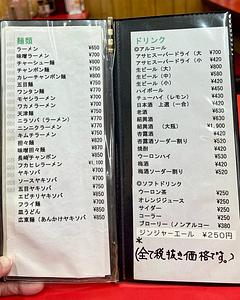 麺類
ラーメン ¥650
味噌ラーメン ¥700
チャーシュー麺 ¥800
チャンポン麺 ¥800
カレーチャンポン麺 ¥800
五目麺 ¥800
ワンタン麺 ¥800
モヤシラーメン
カタメラーメン ¥700
天津麺 ¥750
ニラソバ（ラーメン） ¥700
ニンニクラーメン ¥700
キムチラーメン ¥700
担々麺 ¥800
味噌担々麺 ¥850
長崎チャンポン ¥850
フカヒレラーメン ¥1,100
ヤキソバ ¥700
ソースヤキソバ ¥700
五目ヤキソバ ¥750
エビチリヤキソバ ¥850
フライ麺 ¥700
皿うどん ¥850
広東麺（あんかけヤキソバ ¥850
ドリンク
◎アルコール
アサヒスーパードライ（大 ¥700
アサヒスーパードライ（小
生ビール（大） ¥800
生ビール（中） ¥580
生ビール（小） ¥420
ハイボール ¥450
チューハイ（レモン） ¥430
日本酒 上選（一合） ¥420
老酒 ¥630
紹興酒 ¥630
紹興酒 （大瓶） ¥1,900
杏露酒 ¥420
杏露酒ソーダ割り ¥520
焼酎 ¥420
ウーロンハイ ¥520
梅酒 ¥420
梅酒ソーダ割り ¥520
◎ソフトドリンク
ウーロン茶 ¥250
オレンジジュース ¥250
サイダー ¥250
コーラー ¥250
ブローリー（ノンアルコー ¥380
ジンジャーエール ¥250円
*
(全て税抜き価格です。)